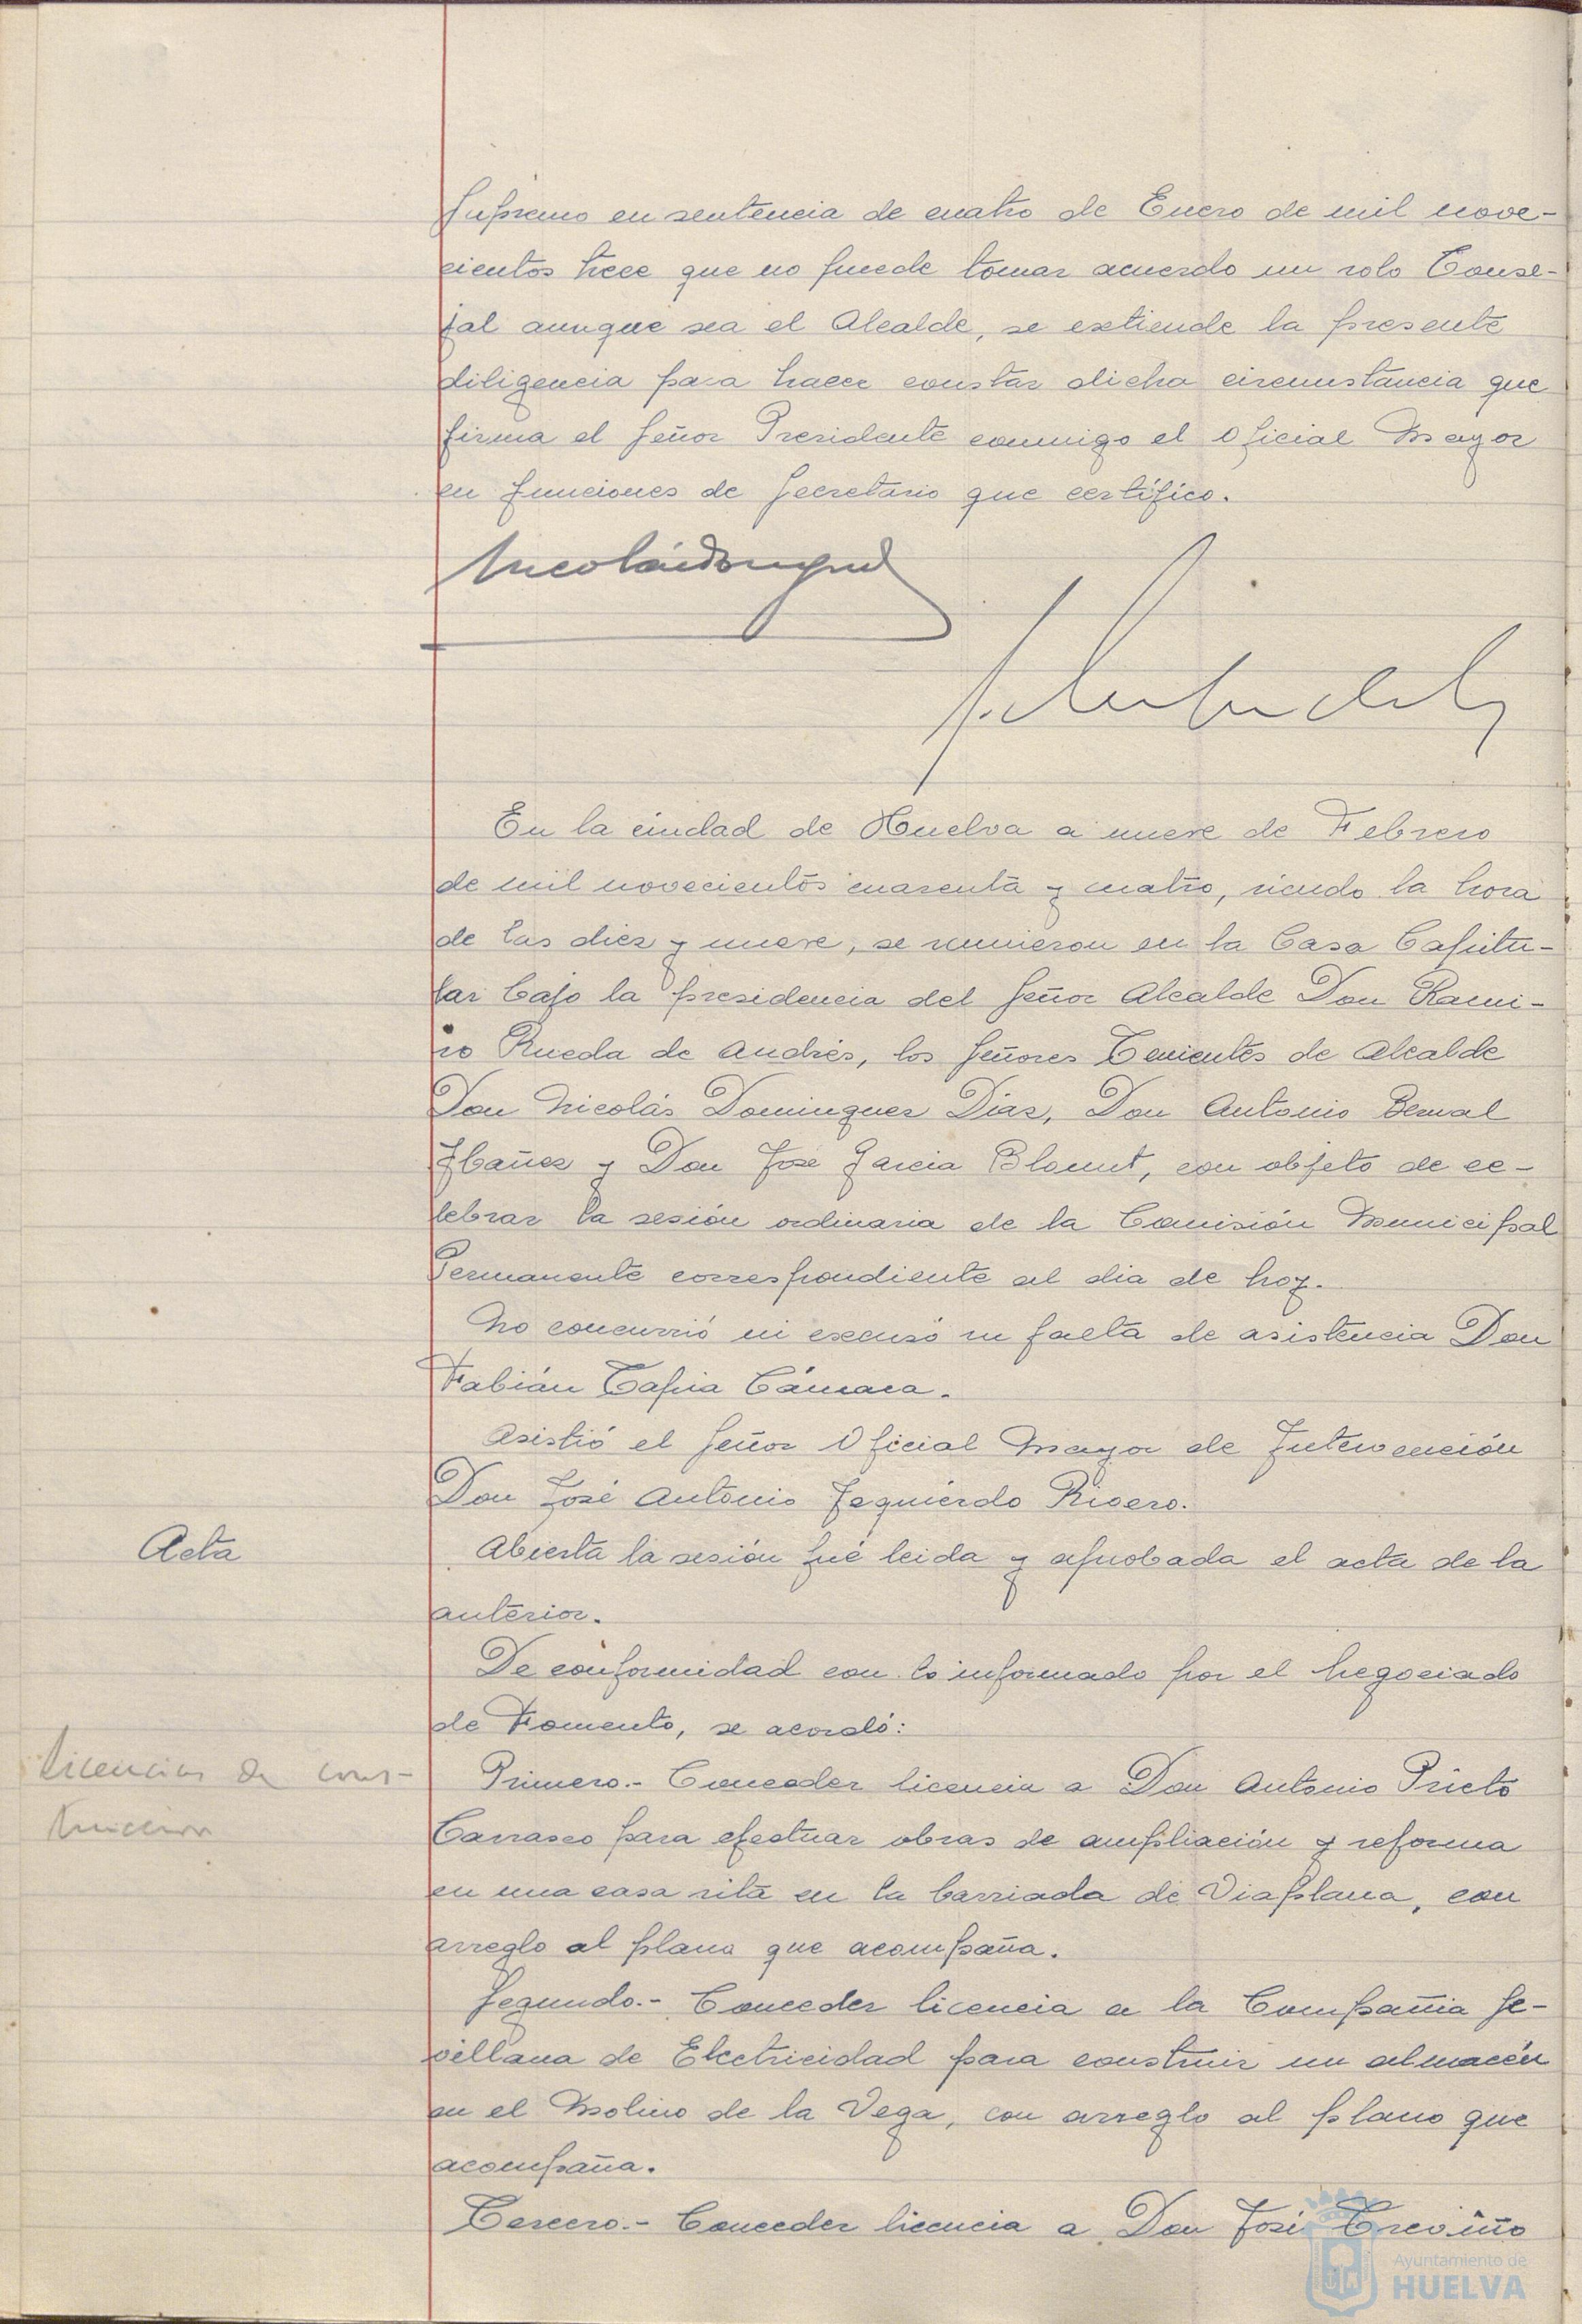 Supremo en sentencia de cuatro de Enero de mil nove-
cientos trece que no puede tomar acuerdo un solo Conse-
jal aunque sea el Alcalde, se extiende la presente
diligencia para hacer constar dicha circunstancia que
firma el Señor Presidente conmigo el Oficial Mayor
en funciones de Secretario que certifico.
En la ciudad de Huelva a nueve de Febrero
de mil novecientos cuarenta y cuatro, siendo la hora
de las diez y nueve, se reunieron en la Casa Capitu-
lar bajo la presidencia del Señor Alcalde Don Rami-
ro Rueda de Andrés, los Señores Tenientes de Alcalde
Don Nicolás Dominguez Diaz, Don Antonio Bernal
Ybañez y Don José Garcia Blount, con objeto de ce-
lebrar la sesión ordinaria de la Comisión Municipal
Permanente correspondiente al dia de hoy.
No concurrió ni excusó su falta de asistencia Don
Fabián Tapia Cámara.
Asistió el Señor Oficial Mayor de Intervención
Don José Antonio Izquierdo Rivero.
Acta
Abierta la sesión fué leida y aprobada el acta de la
anterior.
De conformidad con lo informado por el Negociado
de Fomento, se acordó:
Licencias de cons-
trucción
Primero.- Conceder licencia a Don Antonio Prieto
Carrasco para efectuar obras de ampliación y reforma
en una casa sita en la barriada de Viaplana, con
arreglo al plano que acompaña.
Segundo.- Conceder licencia a la Compañia Se-
villana de Electricidad para construir un almacén
en el Molino de la Vega, con arreglo al plano que
acompaña.
Tercero.- Conceder licencia a Don José Treviño
Ayuntamiento de
HUELVA